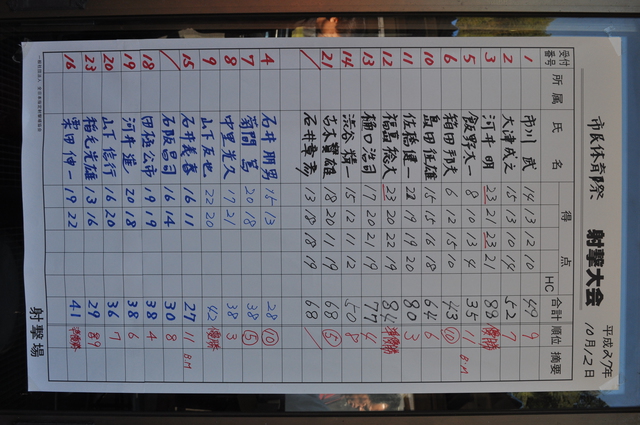 市民体育祭、 射撃大会 平成27年 10月12日
受付番号 所属 氏名 得点 HC 合計 順位 摘要
1 市川 武 14 13 12 10 49 9
2 大津 成之 15 13 10 14 52 7
3 河井 明 23 21 23 21 88 優勝
5 飯野 太一 8 10 13 4 35 11 B.M
6 箱田 邦夫 6 12 15 10 43 10
10 島田 佳雄 15 15 16 18 64 6
11 佐橋 健一 22 19 19 20 80 3
12 福島 徳夫 23 20 22 19 84 準優勝
13 樋口 浩司 17 20 21 19 77 4
14 渋谷 輝一 15 12 11 12 50 8
21 吉本 賢雄 18 20 11 19 68 5
石井 章斎 13 18 18 19 68
4 石井 朋男 15 13 28 10
7 菊間 寛 20 18 38 5
8 中里 光久 17 21 38 3
9 山下 友也 22 20 42 優勝
15 石井 義春 16 11 27 11 B.M
石阪 昌司 16 14 30 8
18 田極 公市 19 19 38 4
19 河井 進 20 18 38 6
20 山下 信行 16 20 36 7
23 稲元 光雄 13 16 29 9
16 栗田 伸一 19 22 41 準優勝
射撃場